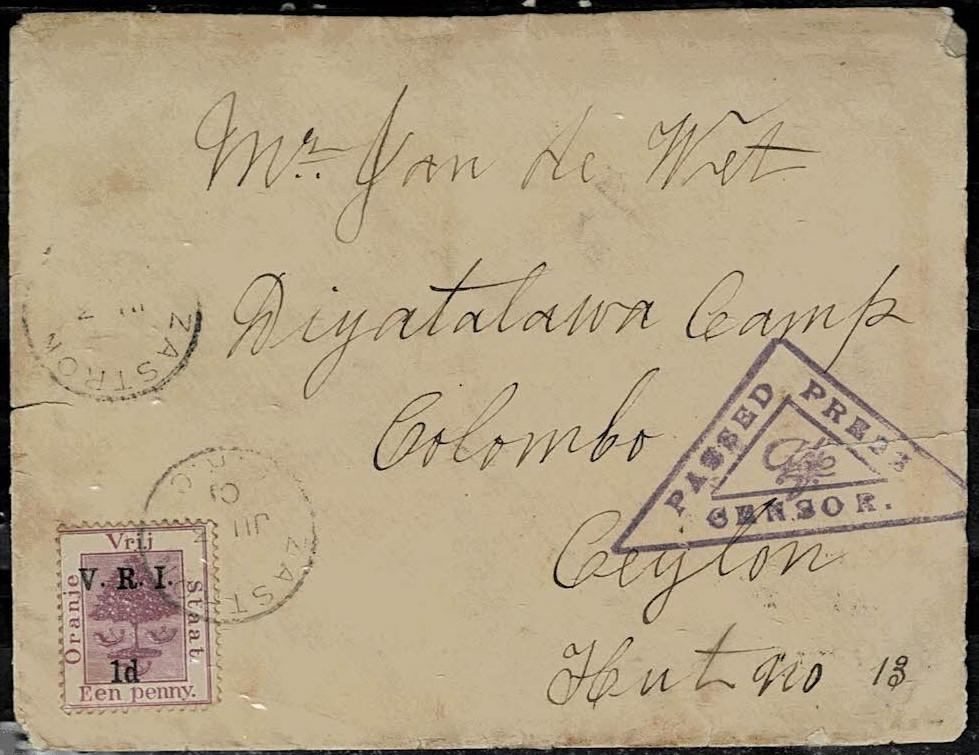 Mr. Jan de Wet
Diyatalawa Camp
Colombo
Ceylon
Hut no 13
PASSED PRESS
CENSOR.
ZASTRON
ZAST
JU
01
Vrij
Oranje
Staat.
V. R. I.
1d
Een penny.